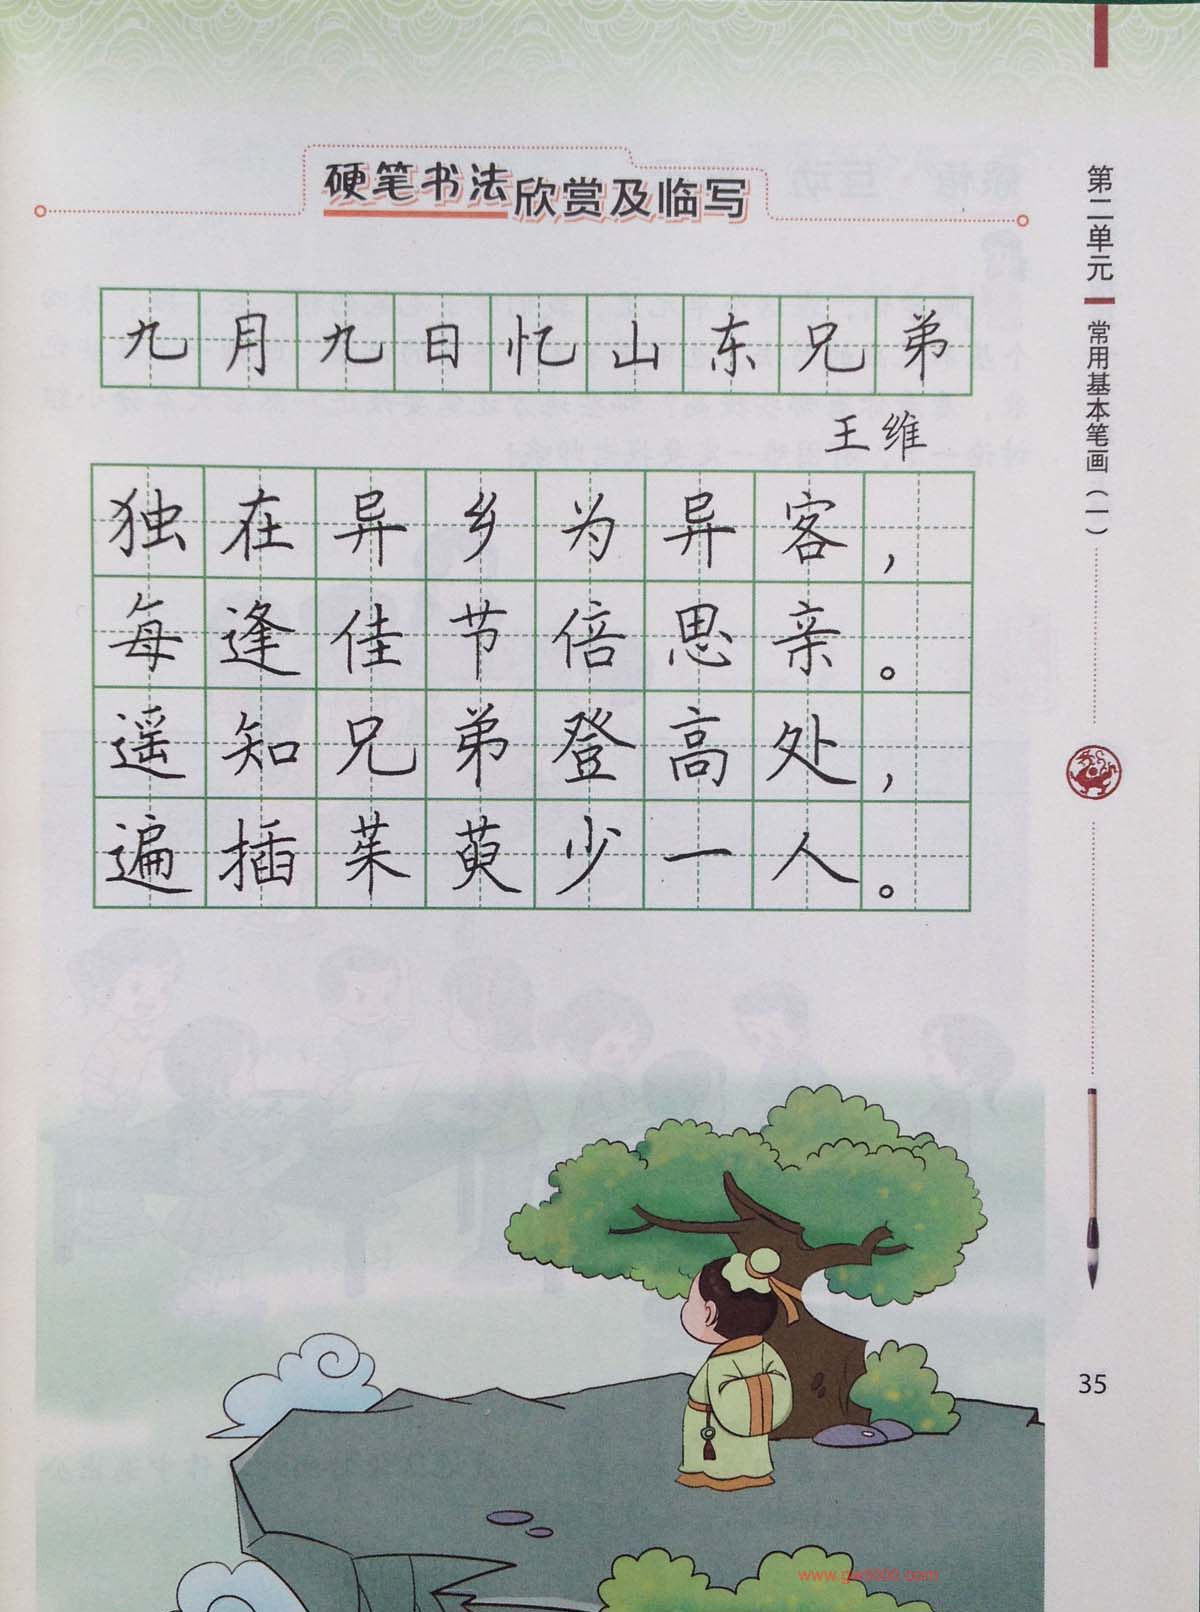 硬笔书法欣赏及临写
九月九日忆山东兄弟
王维
独在异乡为异客，
每逢佳节倍思亲。
遥知兄弟登高处，
遍插茱萸少一人。
第二单元
常用基本笔画（一）
35